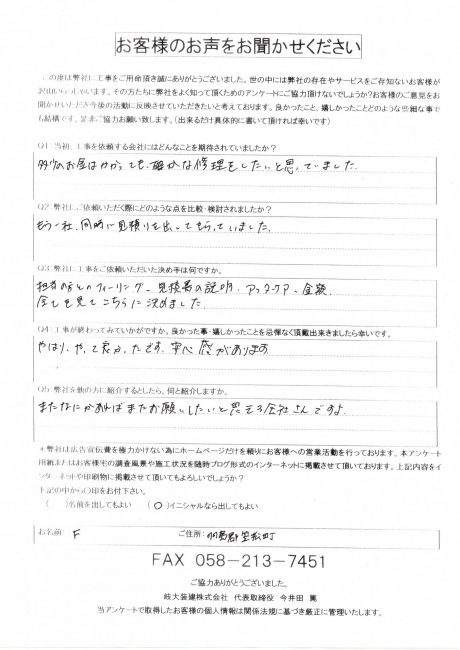 お客様のお声をお聞かせください
この度は弊社に工事をご用命頂き誠にありがとうございました。世の中には弊社の存在やサービスをご存知ないお客様が
沢山いらっしゃいます。その方たちに弊社をよく知って頂くためのアンケートにご協力頂けないでしょうか?お客様のご意見をお
聞かせいただき今後の活動に反映させていただきたいと考えております。良かったこと、嬉しかったことどのような些細な事で
も結構です。是非ご協力お願い致します。(出来るだけ具体的に書いて頂ければ幸いです)
Q1:当初、工事を依頼する会社にはどんなことを期待されていましたか?
多少のお金はかかっても、確かな修理をしたいと思っていました。
Q2:弊社にご依頼いただく際にどのような点を比較・検討されましたか?
もう一社、同時に見積りを出してもらっていました。
Q3:弊社に工事をご依頼いただいた決め手は何ですか。
担当の方とのフィーリング、見積書の説明、アフターケアー、金額、
全てを見てこちらに決めました。
Q4:工事が終わってみていかがですか。良かった事・嬉しかったことを忌憚なく頂戴出来きましたら幸いです。
やはり、やって良かったです。安心感があります。
Q5:弊社を他の方に紹介するとしたら、何と紹介しますか。
またなにかあればまたお願いしたいと思える会社さんですよ。
*弊社は広告宣伝費を極力かけない為にホームページだけを頼りにお客様への営業活動を行っております。本アンケート
用紙またはお客様宅の調査風景や施工状況を随時ブログ形式のインターネットに掲載させて頂いております。上記内容をイ
ンターネットや印刷物に掲載させて頂いてもよろしいでしょうか?
下記の中から○印をお付下さい。
( )名前を出してもよい (○)イニシャルなら出してもよい
お名前: F ご住所: 羽島郡笠松町
FAX 058-213-7451
ご協力ありがとうございました。
岐大装建株式会社 代表取締役 今井田 篤
当アンケートで取得したお客様の個人情報は関係法規に基づき厳正に管理いたします。